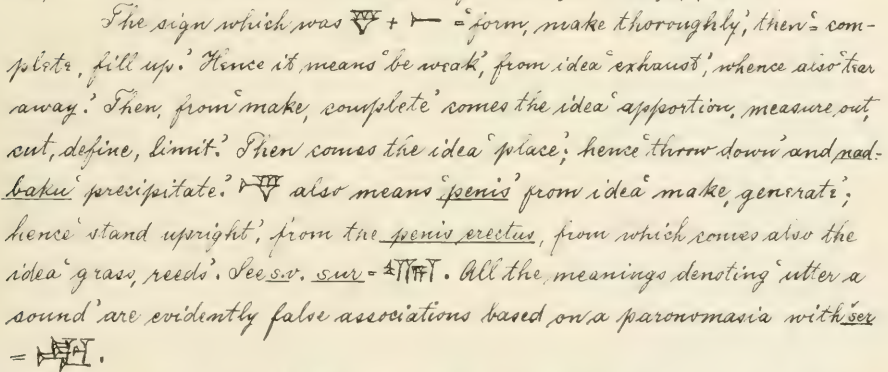 The sign which was + = 'form, make thoroughly', then = 'com-
plete, fill up.' Hence it means 'be weak', from idea 'exhaust', whence also 'tear
away.' Then, from 'make, complete' comes the idea 'apportion, measure out,
cut, define, limit.' Then comes the idea 'place'; hence 'throw down' and nad-
baku 'precipitate.' also means 'penis' from idea 'make, generate';
hence 'stand upright', from the penis erectus, from which comes also the
idea 'grass, reeds'. See s.v. sur = . All the meanings denoting 'utter a
sound' are evidently false associations based on a paronomasia with ser
= .